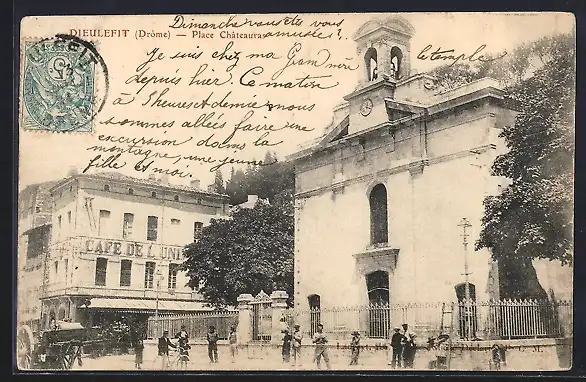 DIEULEFIT (Drôme) — Place Châteauras
Dimanche vous êtes vous
amusées?
je suis chez ma Gran d'mère
depuis hier. Ce matin
à 5 heures et demie nous
sommes allées faire une
excursion dans la
montagne, une jeune
fille et moi.
le temple
5
CAFÉ DE L'UNI
C. M.